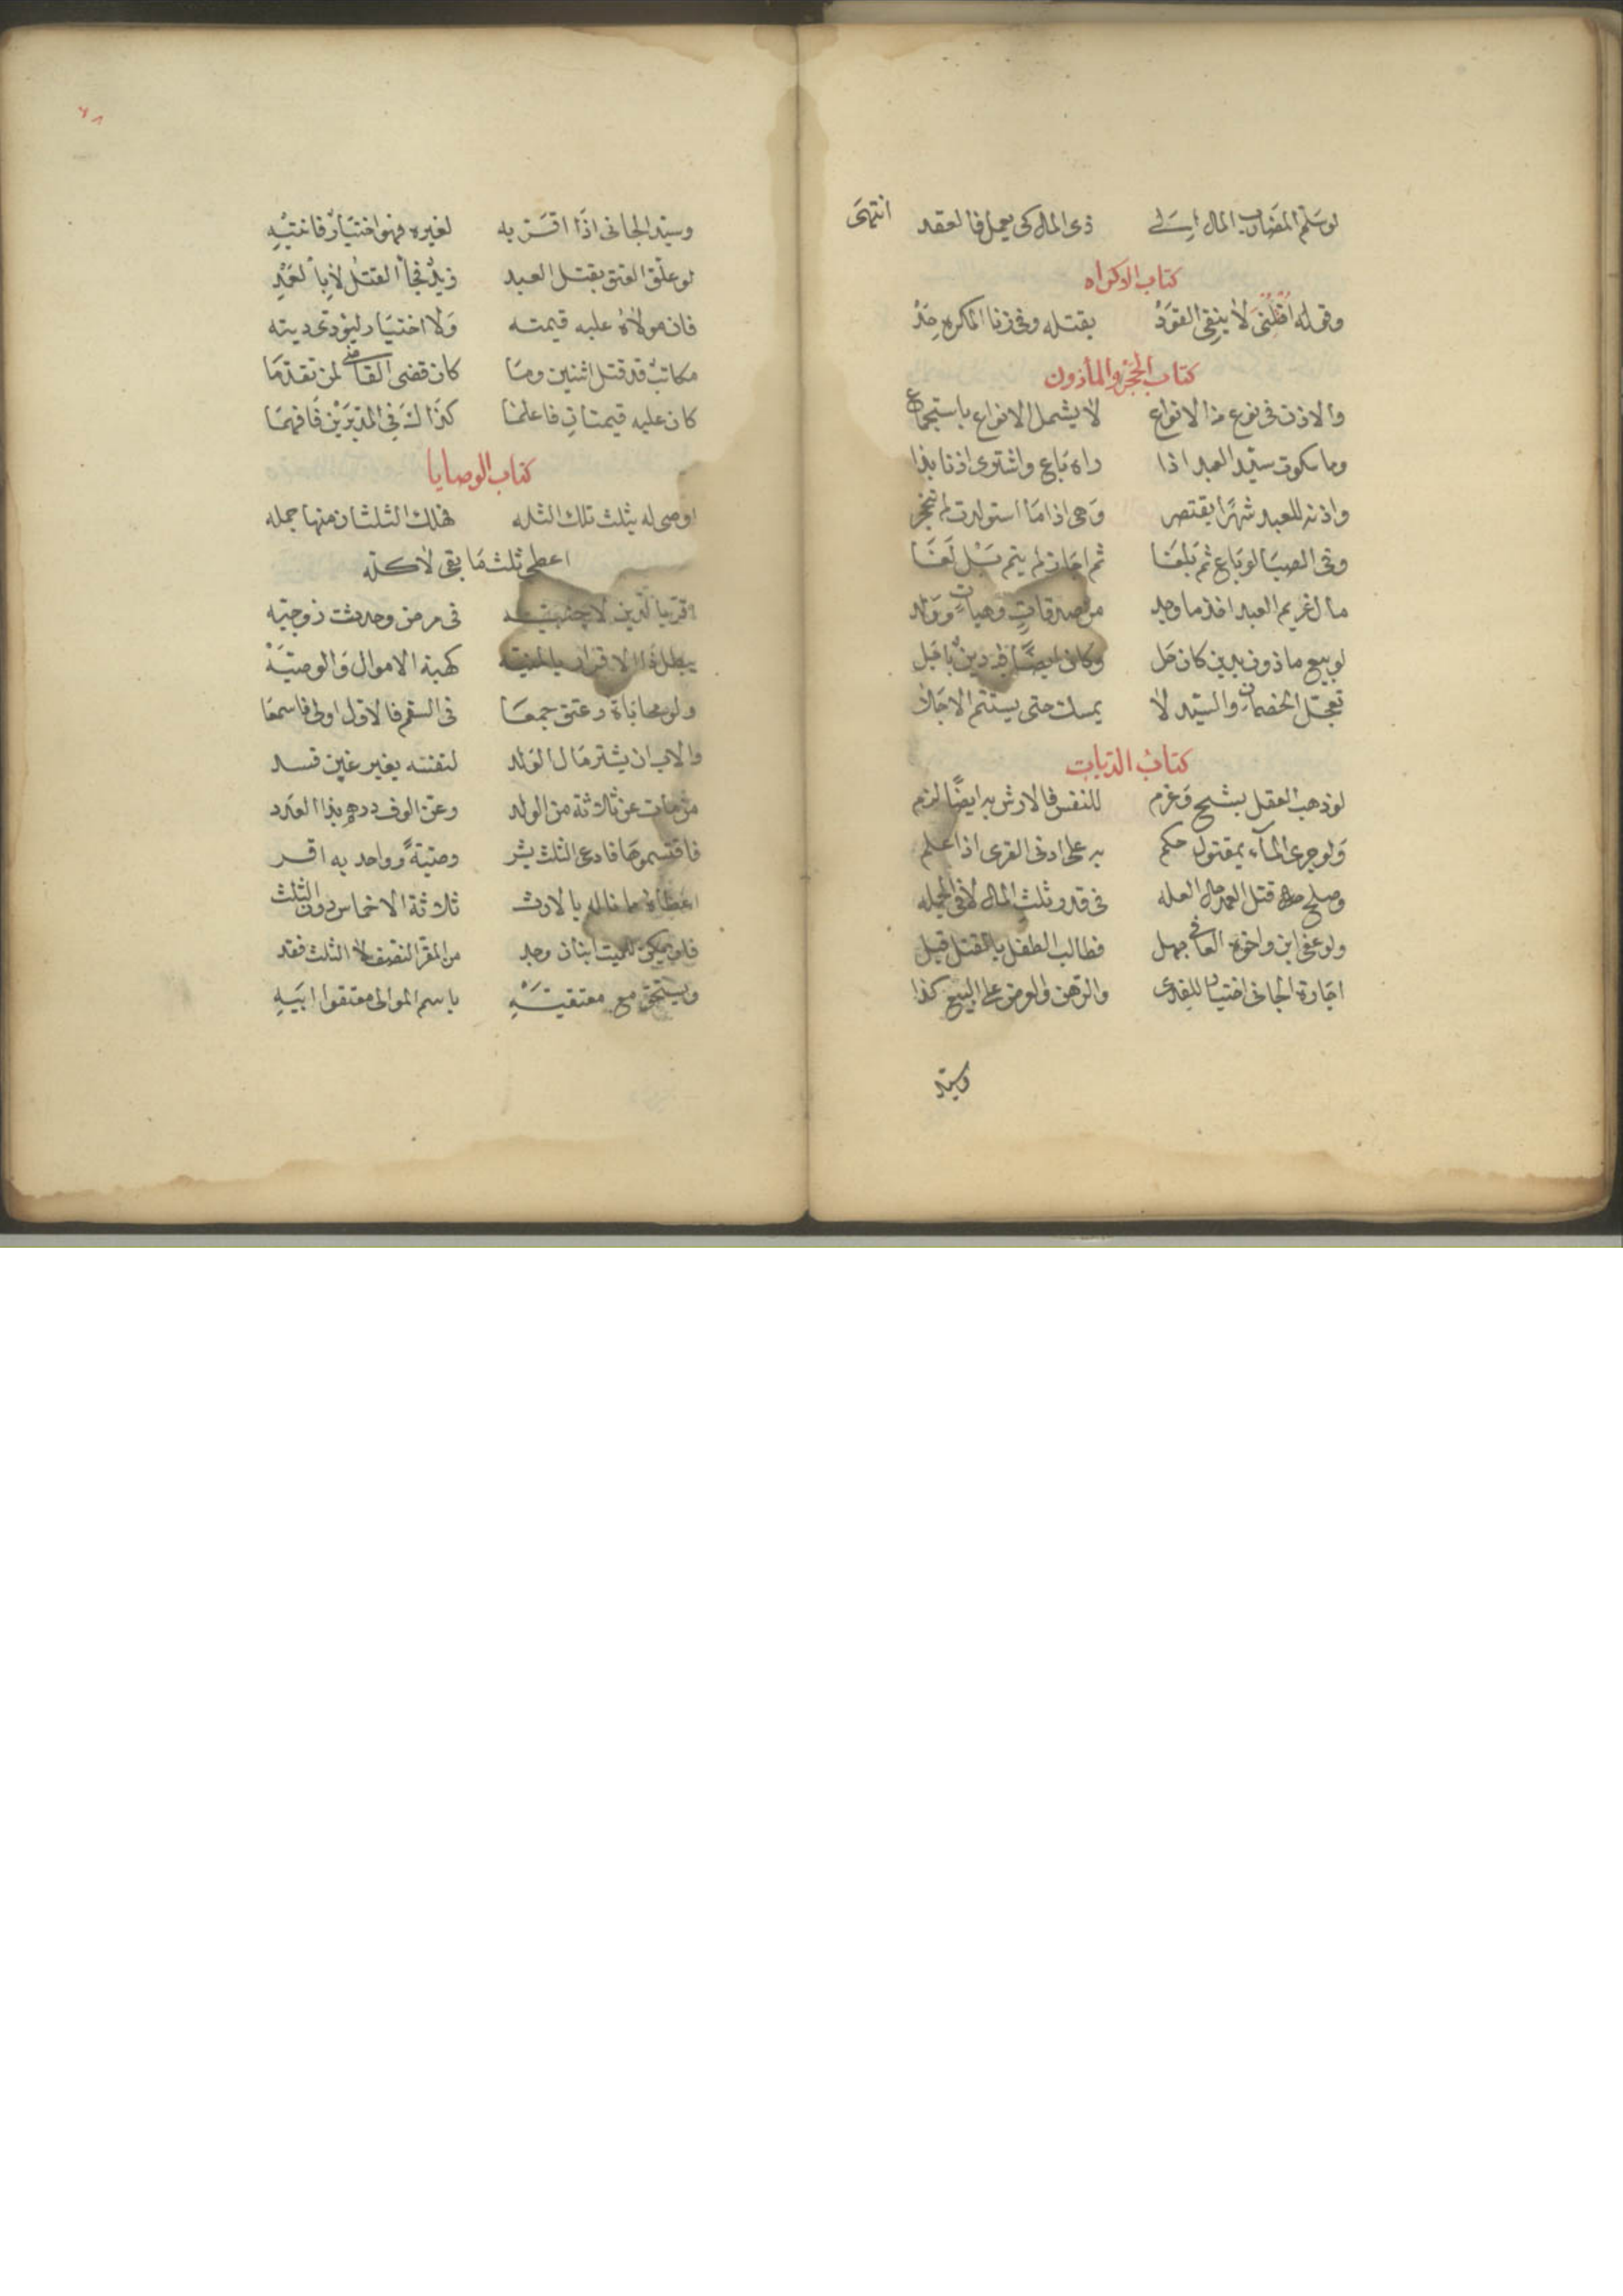 لو سلّم المضارب المال الى ذى المال كى يعمل فالعقد انتهى
كتاب الاكراه
وقوله اقتلنى لا ينفى القوَد بقتله وفى زنا المكره حَد
كتاب الحجر والمأذون
والاذن فى نوع من الانواع لا يشمل الانواع باستجماع
وما سكوت سيّد العبد اذا راه باع واشترى اذنا بذا
واذنه للعبد شهرًا يقتصر وهى اذا ما استولدت لم تنحجر
وفى الصبا لو باع ثم بلغا ثم اجاز لم يتم بَل لَغَا
مال غريم العبد اخذ ما وجد من صدقاتٍ وهباتٍ وولد
لو بيع ماذون بدين كان حَل وكان ايضًا فيه دين باجَل
تعجّل الخصمان والسيّد لا يمسك حتى يستتم الاجَلا
كتاب الديات
لو ذهب العقل بشج وغرم للنفس فالارش به ايضًا لزم
ولو جرى المآء بمقتول حكم به على ادنى القرى اذا علم
وصلح قتل العمد حال العله فى قدر ثلث المال لا فى الجمله
ولو عفى ابن واخوه العافى جهل فطالب الطفل بالقتل قبل
اجارة الجانى اختيار للفدى والرهن والعرض على البيع كذا
وسيد
٦٨
وسيّد الجانى اذا اقرّ به لغيره فهو اختيارٌ فانتبِه
لو علّق العتق بقتل العبد زيدٌ فجا القتل لا بالعَمْدِ
فان مولاه عليه قيمته ولا اختيار ليؤدى ديته
مكاتبٌ قد قتل اثنين وما كان قضى القاضى لمن تقدّما
كان عليه قيمتانِ فاعلما كذاك فى المدبّرَيْن فافهما
كتاب الوصايا
اوصى له بثلث تلك الثله فهلك الثلثان منها جمله
اعطى ثلث ما بقى لا كله
اقرّ بالدين فى مرض وحدثت زوجيّه
يبطل ذا الاقرار بالمنيّه كهبة الاموال والوصيّه
ولو محاباة وعتق جمعا فى السقم فالاوّل اولى فاسمعا
والاب ان يشتر مال الولد لنفسه بغير غبن فسد
من مات عن ثلاثة من الولد وعن الوف درهم بذا العدد
فاقتسموها فادعى الثلث بشر وصيّةً وواحد به اقر
اعطاه مما ناله بالارث ثلاثة الاخماس دون الثلث
فلو يكون للميت ابنان وجد من المقرّ النصف لا الثلث فقد
ويستحق مع معتقيَه باسم الموالى معتقوا ابيَه